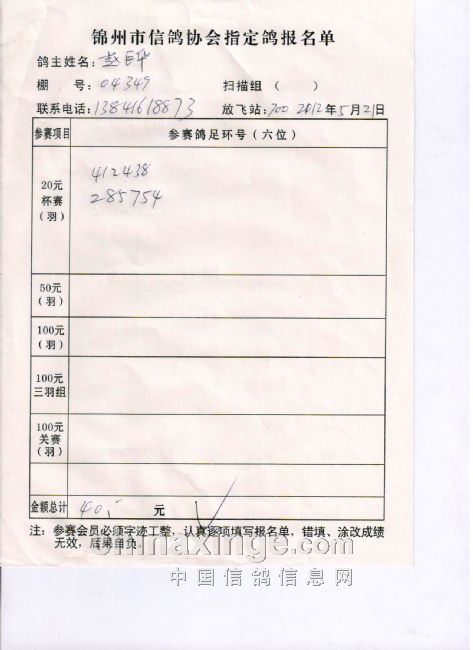 锦州市信鸽协会指定鸽报名单
鸽主姓名：赵白华
棚 号：04349 扫描组（ ）
联系电话：13841618873 放飞站：700 2012年5月21日
参赛项目 参赛鸽足环号（六位）
20元
杯赛
（羽）
412438
285754
50元
（羽）
100元
（羽）
100元
三羽组
100元
关赛
（羽）
金额总计 40. 元
注：参赛会员必须字迹工整，认真逐项填写报名单，错填、涂改成绩
无效，后果自负
chinaxinge.com
中国信鸽信息网